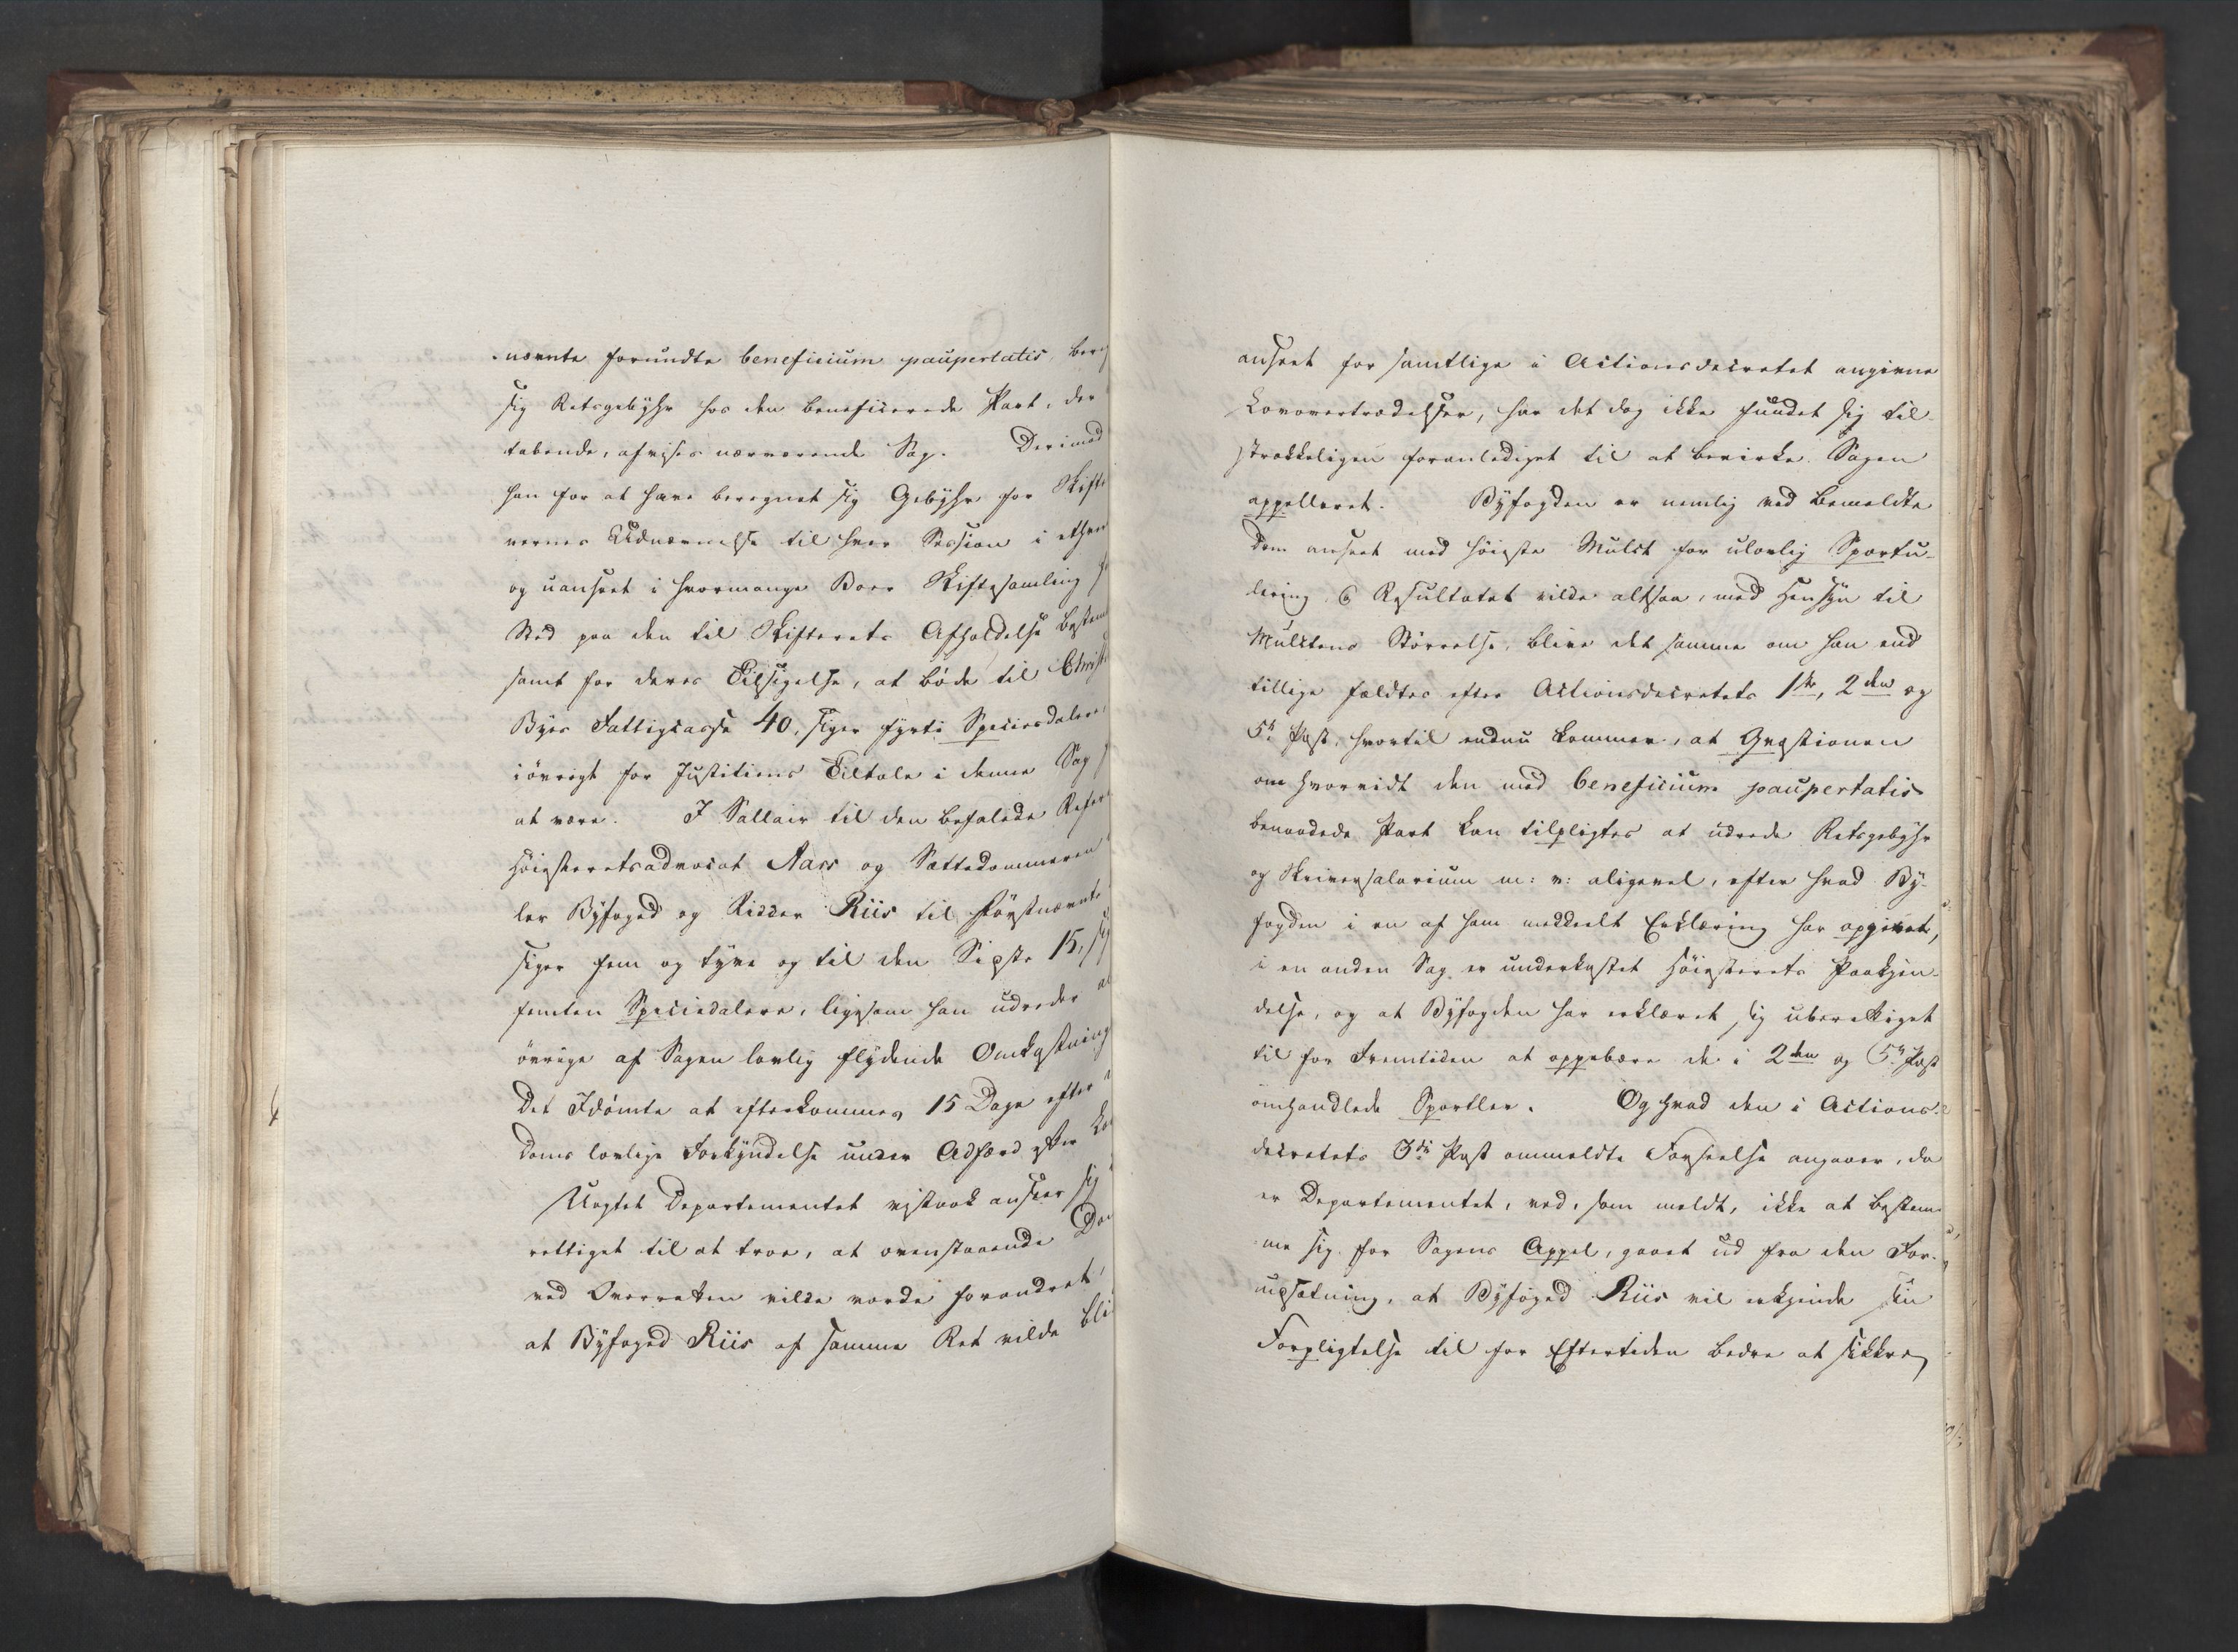 nævnte forundte beneficium paupertatis, bereg
sig Retsgebyhr hos den beneficerede Part, der
tabende, afvises nærværende Sag. Derimod
han for at have beregnet sig Gebyhr for Skifte
vernes Udnævnelse til hver Session i ethver
og uanseet i hvormange Boer Skiftesamling
Sted paa den til Skifterets Afholdelse bestem
samt for deres Tilsigelse, at bøde til Christi
Byes Fattigcasse 40, siger fyrti Speciesdaler,
iövrigt for Justitiens Tiltale i denne Sag
at være. I Sallair til den befalede Refer
Höiesteretsadvocat Aars og Sættedommeren
ler Byfoged og Ridder Riis til förstnævnte
siger fem og tyve og til den Sidste 15, sig
femten Speciedalere, ligesom han udreder
övrige af Sagen lovlig flydende Omkostning
Det Idömte at efterkommes 15 Dage efter
Doms lovlige Forkyndelse under Adfærd efter Lo
Uagtet Departementet vistnok ansees sig
rettiget til at troe, at ovenstaaende Dom
ved Overretten vilde vorde forandret,
at Byfoged Riis af samme Ret vilde bli
anseet for samtlige i Actionsdecretet angivne
Lovovertrædelser, har det dog ikke fundet sig til-
strækkeligen foranlediget til at bevirke Sagen
appelleret. Byfogden er nemlig ved bemeldte
Dom anseet med höieste Mulct for ulovlig Sportu-
lering. Resultatet vilde altsaa, med Hensyn til
Mulctens Störrelse, blive det samme om han end
tillige fældtes efter Actionsdecretets 1ste, 2den og
5te Post, hvortil endnu kommer, at Qvæstionen
om hvorvidt den med beneficium paupertatis
benaadede Part kan tilpligtes at udrede Retsgebyhr
og Skriversalarium m: v: aligevel, efter hvad By-
fogden i en af ham meddeelt Erklæring har opgivet,
i en anden Sag er underkastet Höiesterets Paakjen-
delse, og at Byfogden har erklæret sig uberettiget
til for Fremtiden at oppebære de i 2den og 5te Post
omhandlede Sportler. Og hvad den i Actions-
decretets 3die Post ommeldte Forseelse angaaer, da
er Departementet, ved, som meldt, ikke at bestem-
me sig for Sagens Appel, gaaet ud fra den For-
udsætning, at Byfoged Riis vil erkjende sin
Forpligtelse til for Eftertiden bedre at sikkre